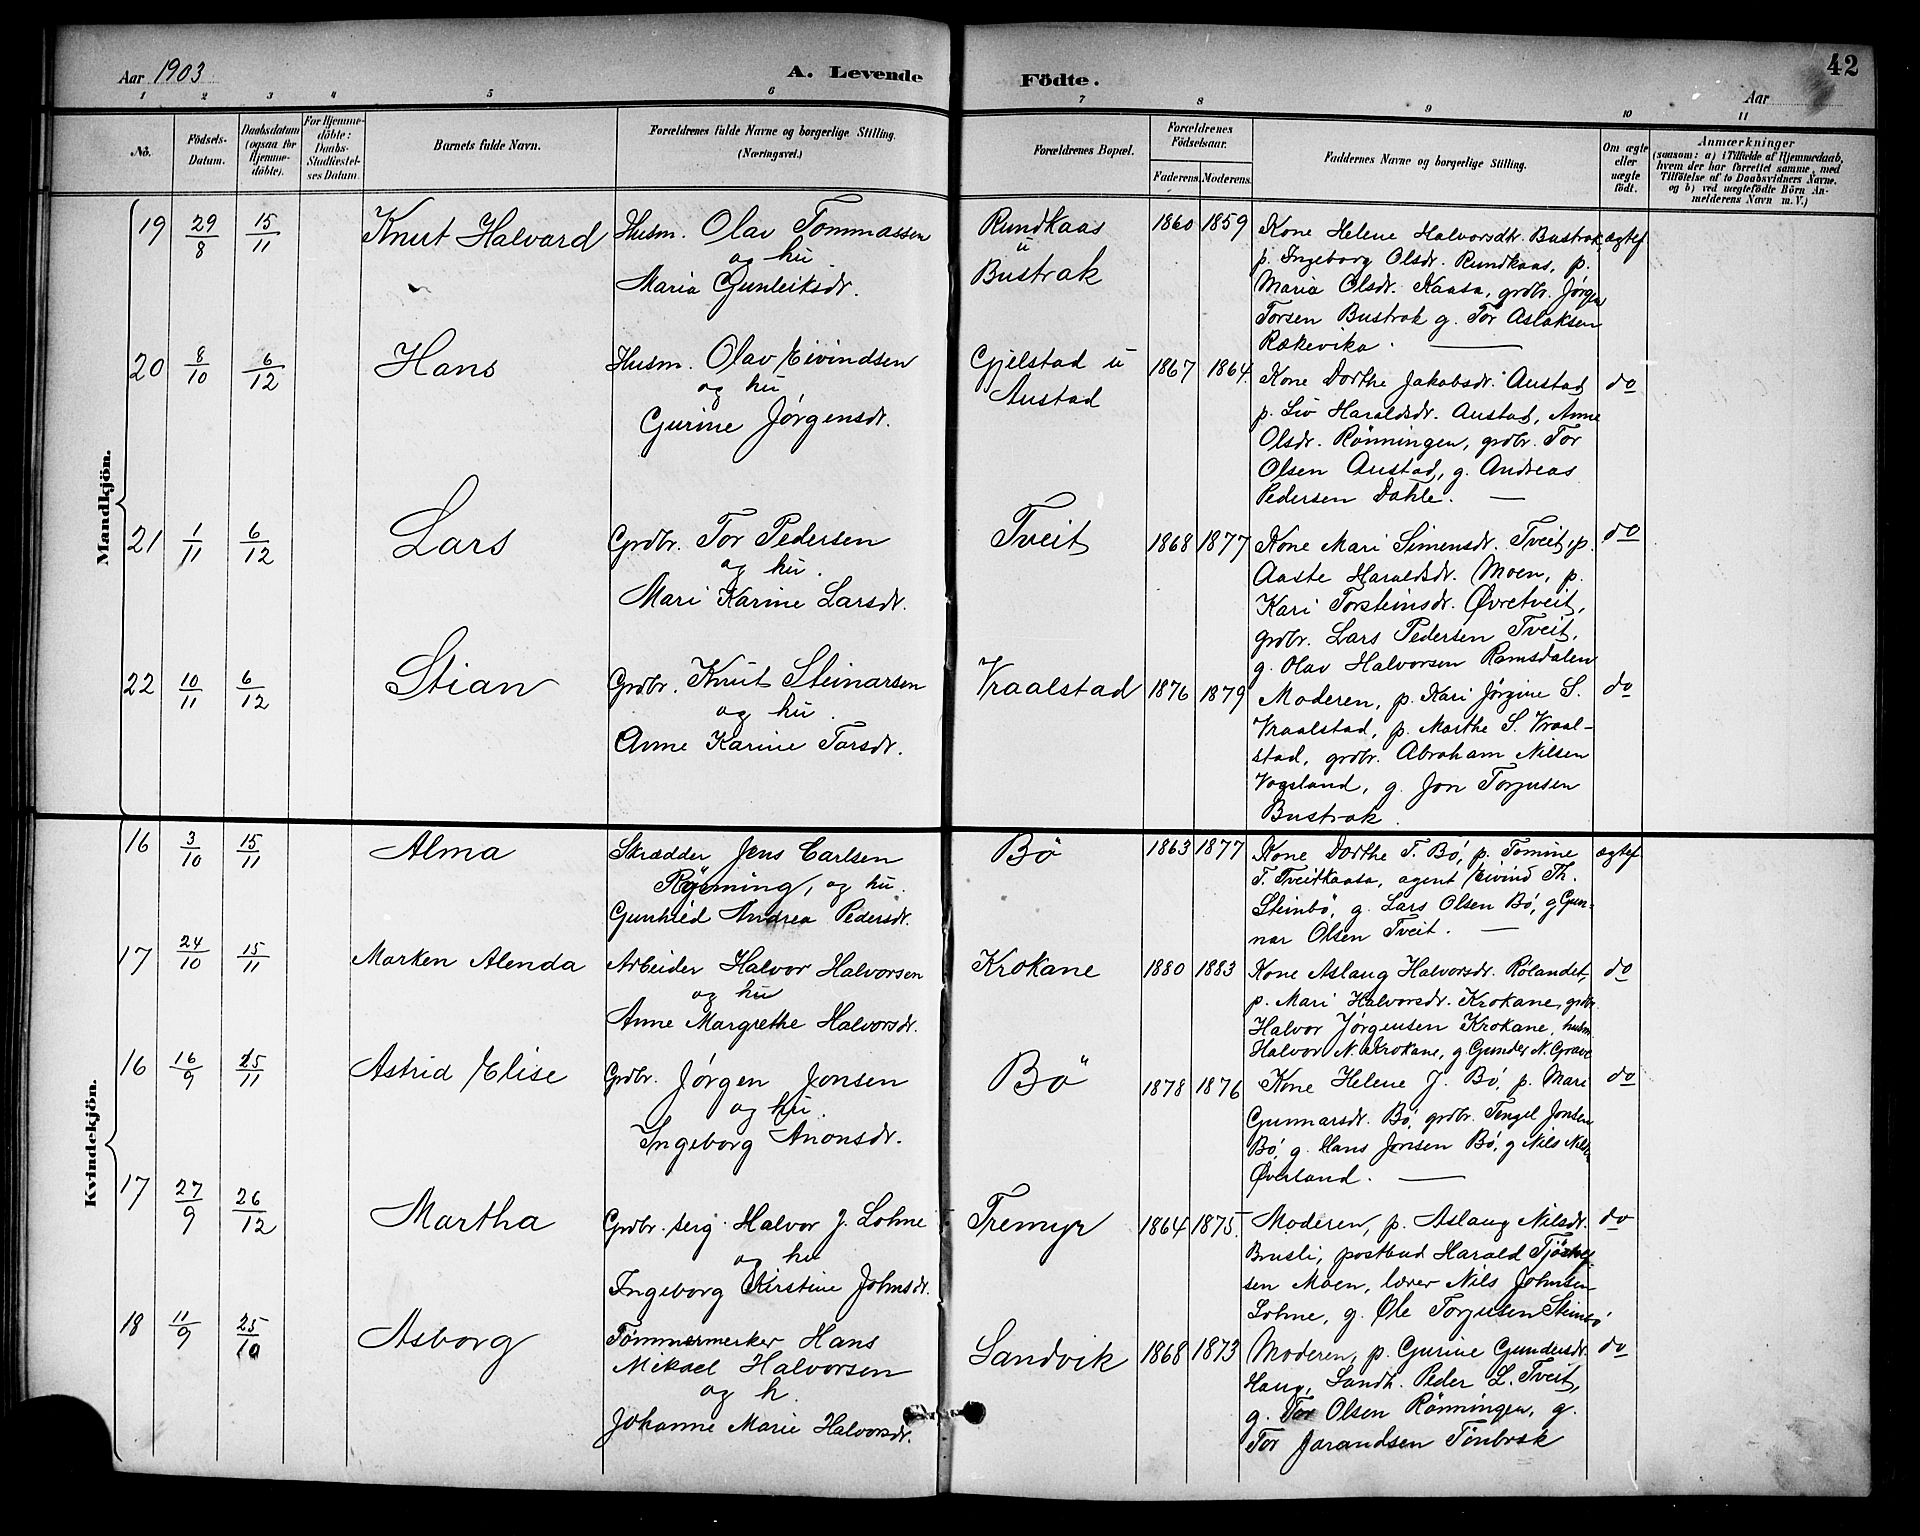 Aar 1903
A. Levende Födte.
42
Aar
1 2 3 4 5 6 7 8 9 10 11
Nö.
Födsels-Datum.
Daabsdatum (ogsaa for Hjemme-döbte).
For Hjemme-döbte: Daabs-Stadfæstel-ses Datum.
Barnets fulde Navn.
Forældrenes fulde Navne og borgerlige Stilling. (Næringsvei.)
Forældrenes Bopæl.
Forældrenes Födselsaar.
Faderens. Moderens.
Faddernes Navne og borgerlige Stilling.
Om ægte eller uægte födt.
Anmærkninger
(saasom: a) i Tilfælde af Hjemmedaab, hvem der har forrettet samme, med Tilföielse af to Daabsvidners Navne. og b) ved uægtefödte Börn An-melderens Navn m. V.)
Mandkjön.
19 29/8 15/11 Knut Halvard
Husm. Olav Tommassen
og hu.
Maria Gunleiksdr.
Rundkaas
u
Bustrak
1860 1859
Kone Helene Halvorsdtr. Bustrak,
p. Ingeborg Olsdr. Rundkaas, p.
Maria Olsdr. Kaasa, grdbr. Jørgen
Torsen Bustrak g. Tor Aslaksen
Rækevika.
ægtef
20 8/10 6/12 Hans
Husm. Olav Eivindsen
og hu
Gurine Jørgensdr.
Gjelstad u
Austad
1867 1864
Kone Dorthe Jakobsdr. Austad
p. Liv Haraldsdr. Austad, Anne
Olsdr. Rönningen, grdbr. Tor
Olsen Austad, g. Andreas
Pedersen Dahle.
do
21 1/11 6/12 Lars
Grdbr. Tor Pedersen
og hu.
Mari Karine Larsdr.
Tveit
1868 1877
Kone Mari Simensdr. Tveit, p.
Aaste Haraldsdr. Moen, p.
Kari Torsteinsdr. Øvretveit,
grdbr. Lars Pedersen Tveit,
g. Olav Halvorsen Ramsdalen
do
22 10/11 6/12 Stian
Grdbr. Knut Steinarsen
og hu.
Anne Karine Tarsdr.
Vraalstad
1876 1879
Moderen, p. Kari Jørgine S.
Vraalstad, p. Marthe S. Vraal-
stad, grdbr. Abraham Nilsen
Vogsland, g. Jon Torjusen
Bustrak.
do
Kvindekjön.
16 3/10 15/11 Alma
Skrædder Jens Carlsen
og hu.
Gunhild Andrea Pedersdr.
Bö
1863 1877
Kone Dorthe T. Bö, p. Tomine
T. Tveitkaasa, agent Eivind Th.
Steinbö, g. Lars Olsen Bö, g Gun-
nar Olsen Tveit.
ægtef
17 24/10 15/11 Marken Alenda
Arbeider Halvor Halvorsen
og hu
Anne Margrethe Halvorsdr.
Krokane
1880 1883
Kone Aslaug Halvorsdr. Rølandet,
p. Mari Halvorsdr. Krokane, grdbr.
Halvor Jørgensen Krokane, husm.
Halvor N. Krokane, g Gunder N. Grave
do
16 16/9 25/11 Astrid Elise
Grdbr. Jørgen Jonsen
og hu.
Ingeborg Anonsdr.
Bö
1878 1876
Kone Helene J. Bö, p. Mari
Gunnarsdr. Bö, grdbr. Tengel Jonsen
Bö, g. Hans Jonsen Bö, g Nils Nilsen
Øverland.
do
17 27/9 26/12 Martha
Grdbr. serg. Halvor J. Lohne
og hu
Ingeborg Kirstine Johnsdr.
Tremyr
1864 1875
Moderen, p. Aslaug Nilsdr.
Brusli, postbud Harald
sen Moen, lærer Nils Johnsen
Lohne, g. Ole Torjusen Steinbö
do
18 11/9 25/10 Asborg
Tømmermerker Hans
Mikael Halvorsen
og h.
Johanne Marie Halvorsdr.
Sandvik
1868 1873
Moderen, p. Gurine Gundersdr.
Haug, Landh. Peder L. Tveit,
g. Tor Olsen Rönningen, g.
Tor Jarandsen
do